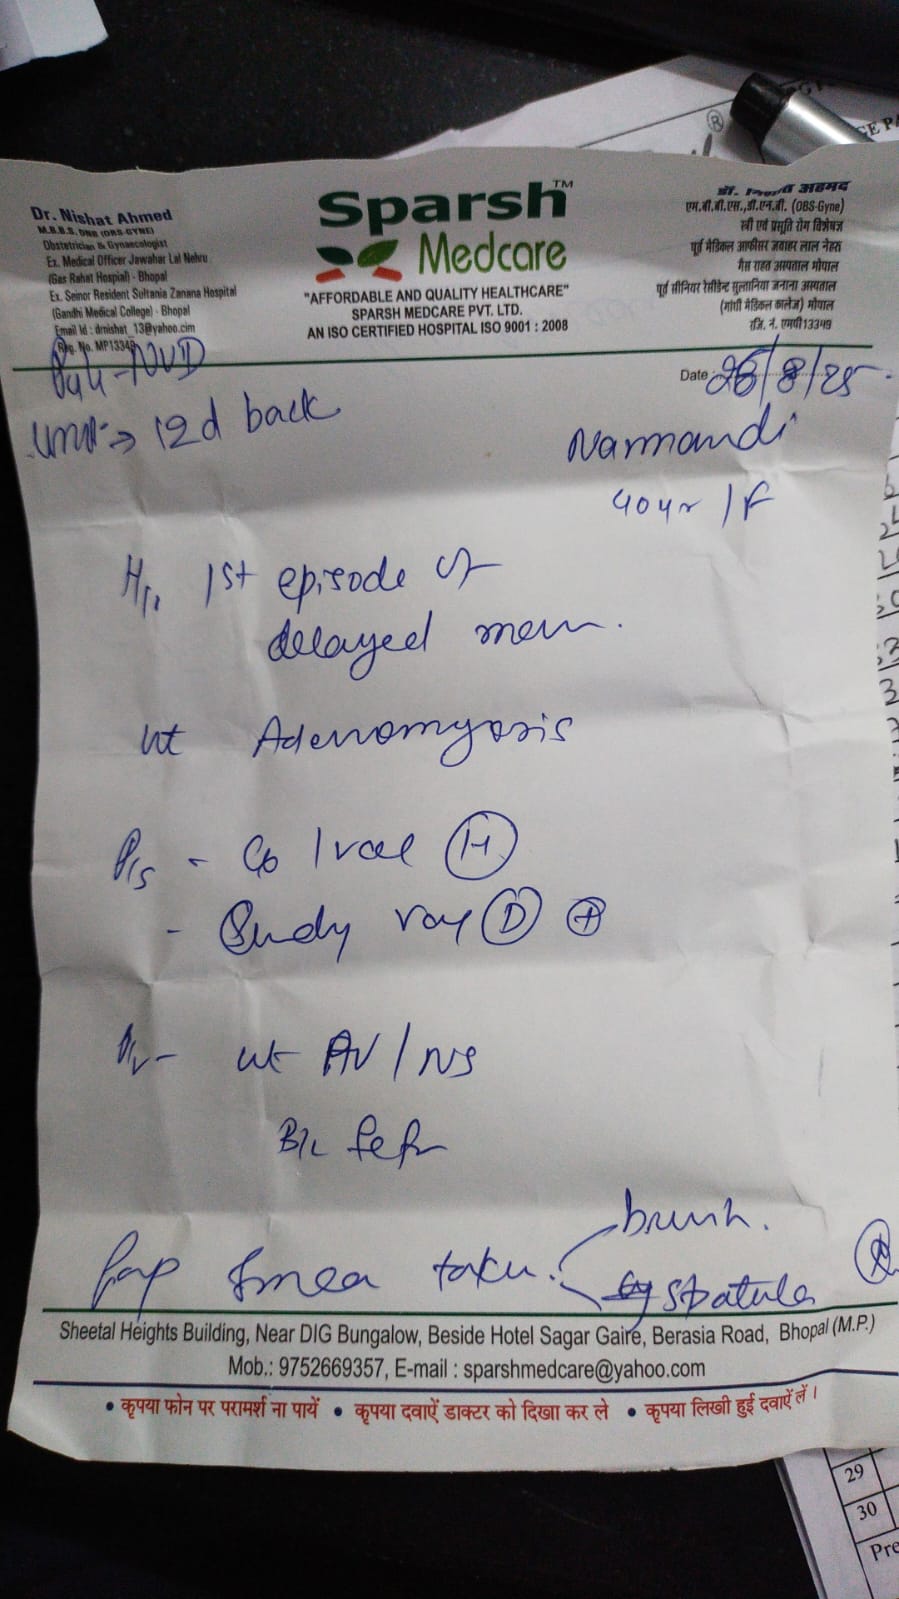 Dr. Nishat Ahmed
M.B.B.S. DNB (OBS-GYNE)
Obstetrician & Gynaecologist
Ex. Medical Officer Jawahar Lal Nehru
(Gas Rahat Hospial) - Bhopal
Ex. Seinor Resident Sultania Zanana Hospital
(Gandhi Medical College) - Bhopal
Email Id : drnishat_13@yahoo.cim
Reg. No. MP13349
Sparsh™
Medcare
"AFFORDABLE AND QUALITY HEALTHCARE"
SPARSH MEDCARE PVT. LTD.
AN ISO CERTIFIED HOSPITAL ISO 9001 : 2008
डॉ. अहमद
एम.बी.बी.एस.,डी.एन.बी. (OBS-Gyne)
स्त्री एवं प्रसूति रोग विशेषज्ञ
पूर्व मेडिकल आफीसर जवाहर लाल नेहरू
गैस राहत अस्पताल भोपाल
पूर्व सीनियर रेसीडेन्ट सुल्तानिया जनाना अस्पताल
(गांधी मेडिकल कालेज) भोपाल
रजि. नं. एमपी13349
NVD
Date 26/8/25
12d back
40yr / F
1st episode of
delayed men
ut Adenomyosis
P/S -
-
P/V - ut AV / NS
B/L
Pap Smea
brush.
spatula
Sheetal Heights Building, Near DIG Bungalow, Beside Hotel Sagar Gaire, Berasia Road, Bhopal (M.P.)
Mob.: 9752669357, E-mail : sparshmedcare@yahoo.com
• कृपया फोन पर परामर्श ना पायें • कृपया दवाऐं डाक्टर को दिखा कर ले • कृपया लिखी हुई दवाऐं लें ।
29
30
Pre